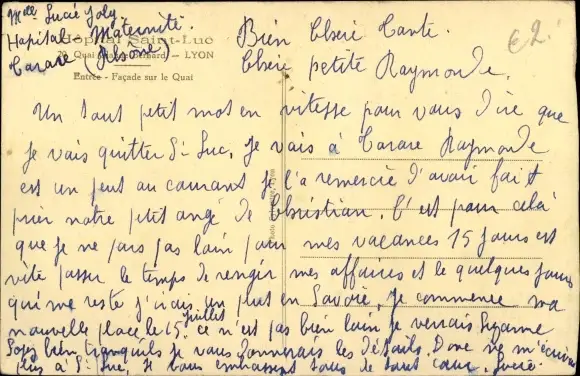 Mlle Lucie Joly
Hopital Maternité.
Tarare (Rhône)
Hôpital Saint-Luc
20, Quai Claude-Bernard — LYON
Entrée - Façade sur le Quai
€2
Bien Chère Tante.
Chère petite Raymonde.
Un tout petit mot en vitesse pour vous dire que
je vais quitter St Luc, je vais à Tarare Raymonde
est un peut au courant je l'a remercie d'avoir fait
prier notre petit ange de Christian. C'est pour celà
que je ne pars pas loin pour mes vacances 15 jours est
vite passer le temps de rengér mes affaires et le quelques jours
qui me reste j'irais un peut en Savoie, je commence ma
nouvelle place le 15 juillet ce n'est pas bien loin je verrais Suzanne
Soyez bien tranquils je vous donnerais les détails. Donc ne m'écrivez
plus à St Luc, Je vous embrassent tous de tout cœur, Lucie.